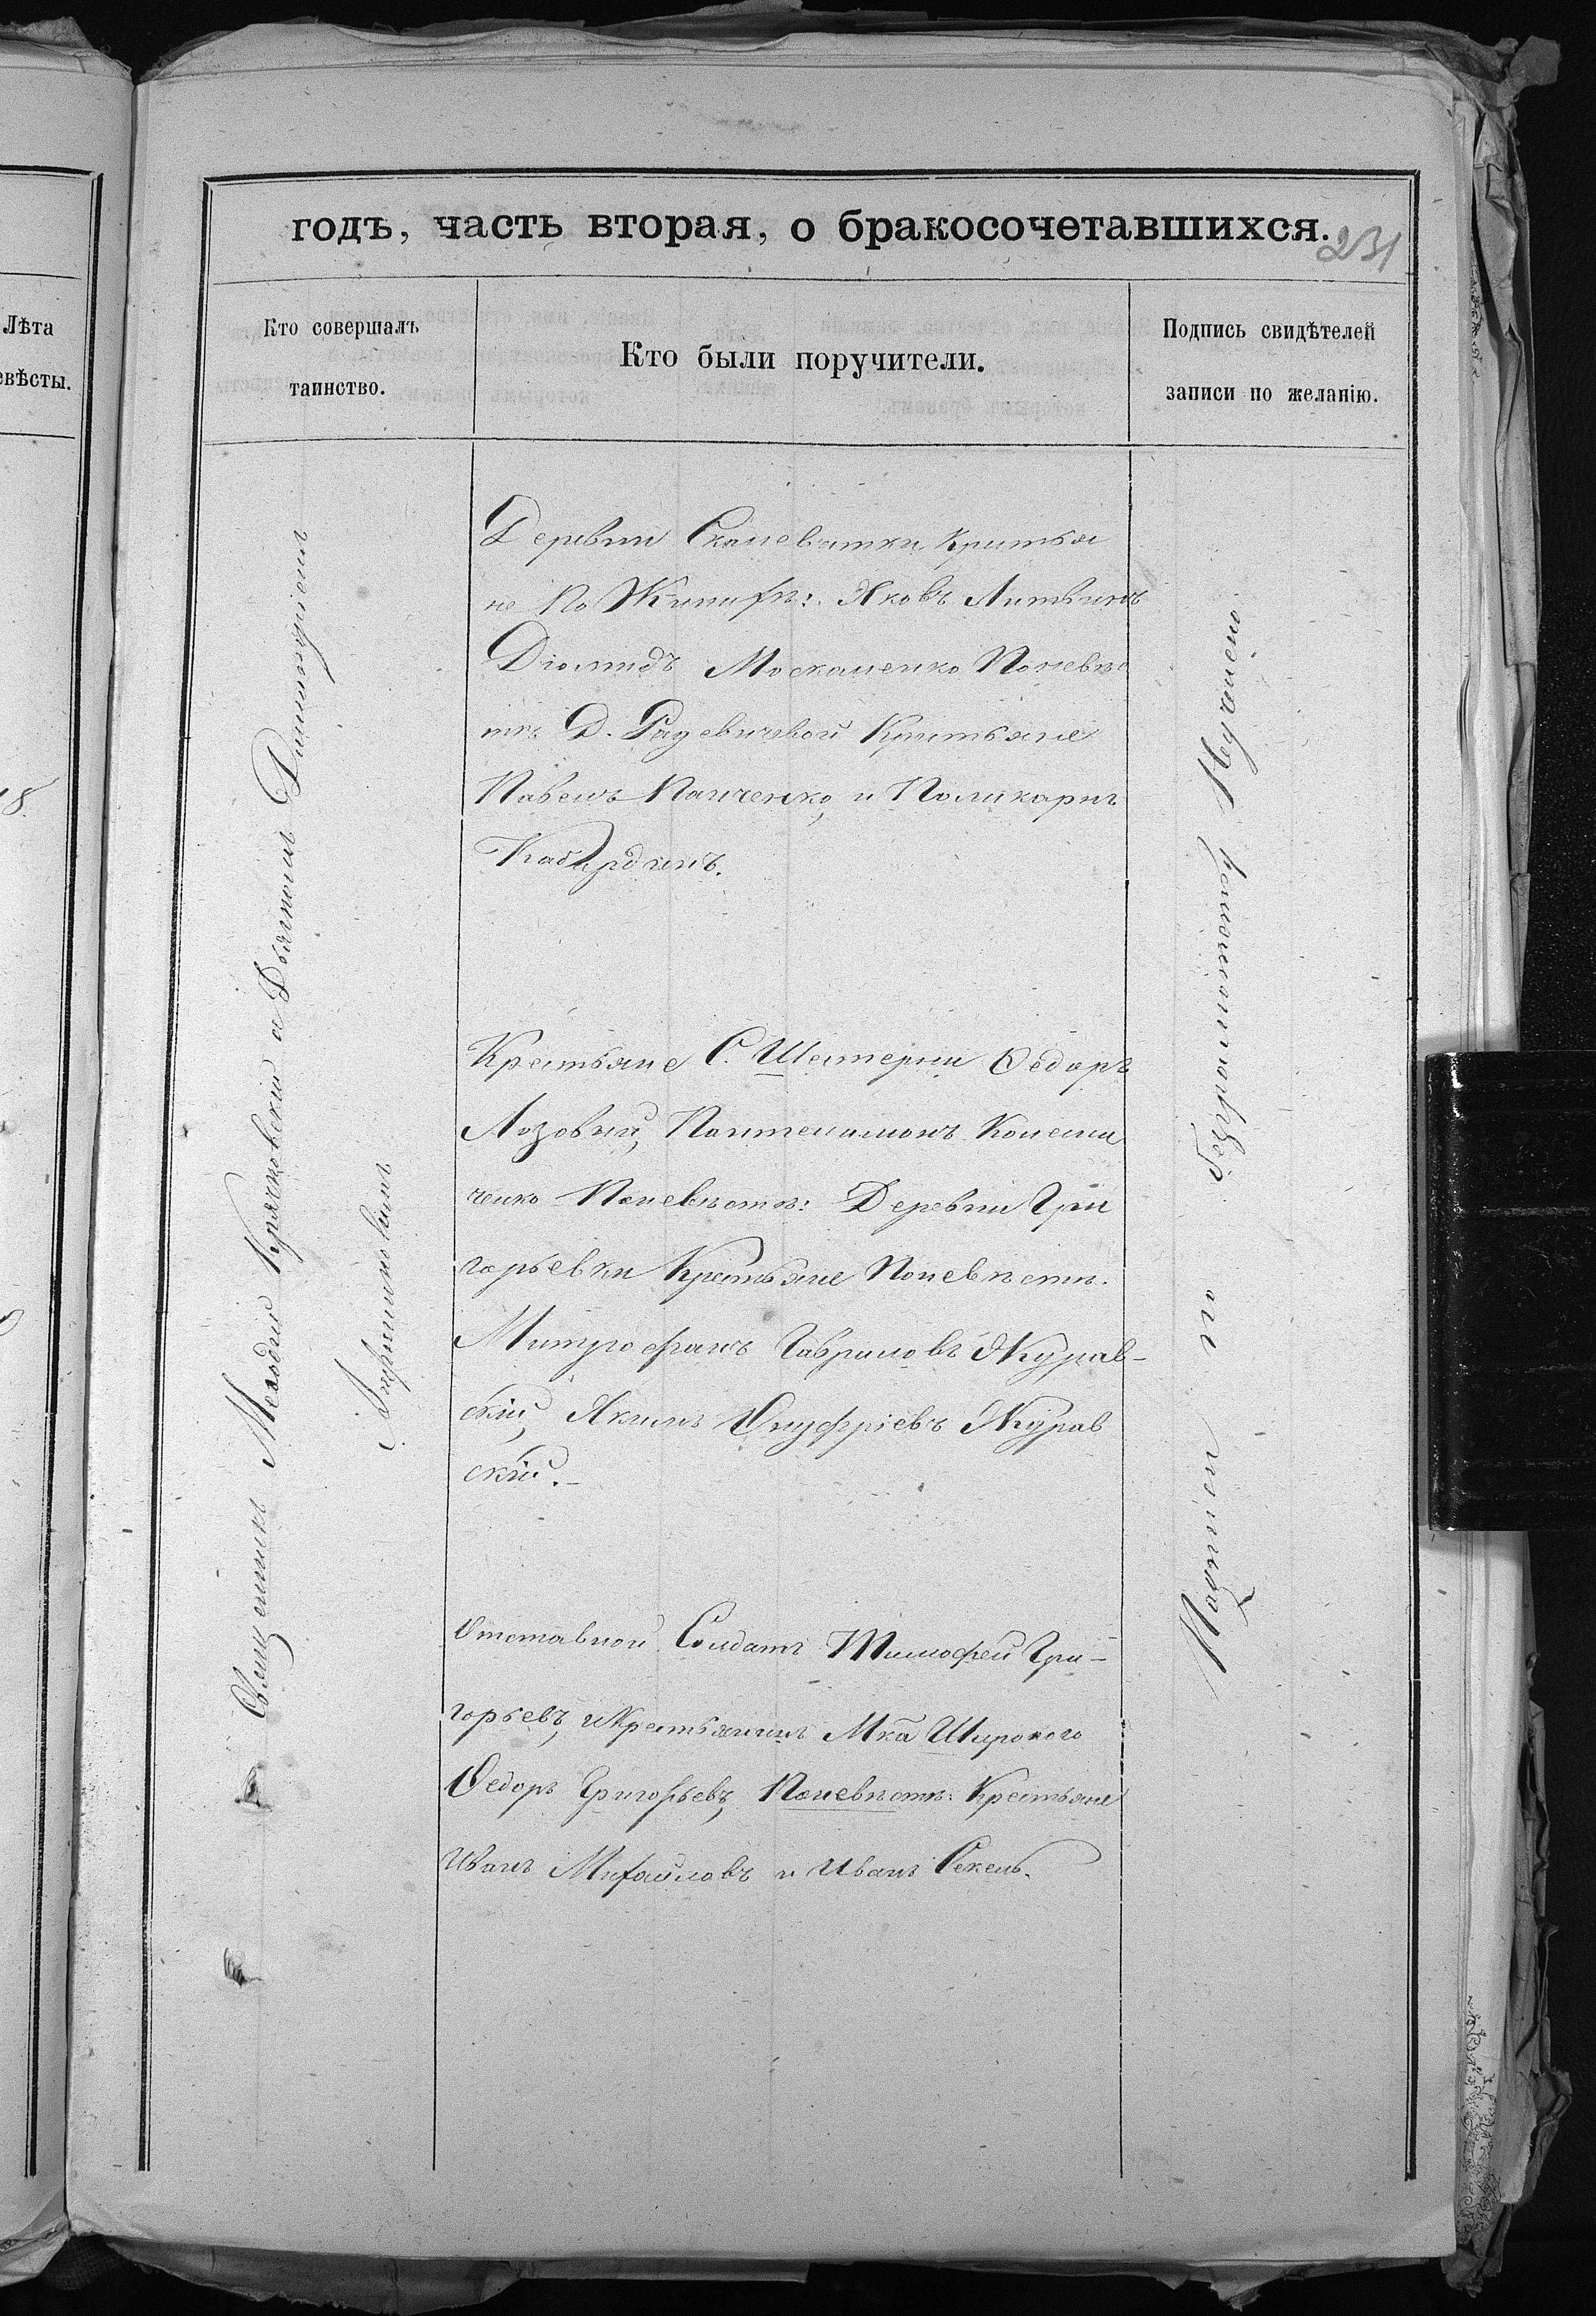 годъ, часть вторая, о бракосочетавшихся.
231
Лѣта
евѣсты.
Кто совершалъ
таинство.
Кто были поручители.
Подпись свидѣтелей
записи по желанію.
18.
Священникъ Меѳодій Крячковскій
Деревни Скалеватки Кристья
не По Жениху: Яковъ Литвинъ
Діомидъ Москаленко Поневѣс
тѣ Д. Радевичевой Кристьяне
Павелъ Панченко, и Поликарпъ
Кабардинъ.
Крестьяне С. Шестерни Ѳедоръ
Лозовый, Пантелимонъ Колесни
ченко Поневѣстѣ: Деревни Гри
горьевки Крестьяне Поневѣсти.
Митрофанъ Гавриловъ Журав-
скій, Якимъ Онуфріевъ Журав
скій.-
Отставной Солдатъ Тимофей Гри-
горьевъ, и Крестьянинъ Мка Широкого
Ѳедоръ Григорьевъ, Поневѣстѣ: Крестьяне
Иванъ Михайловъ и Иванъ Секель.
по безграмотству